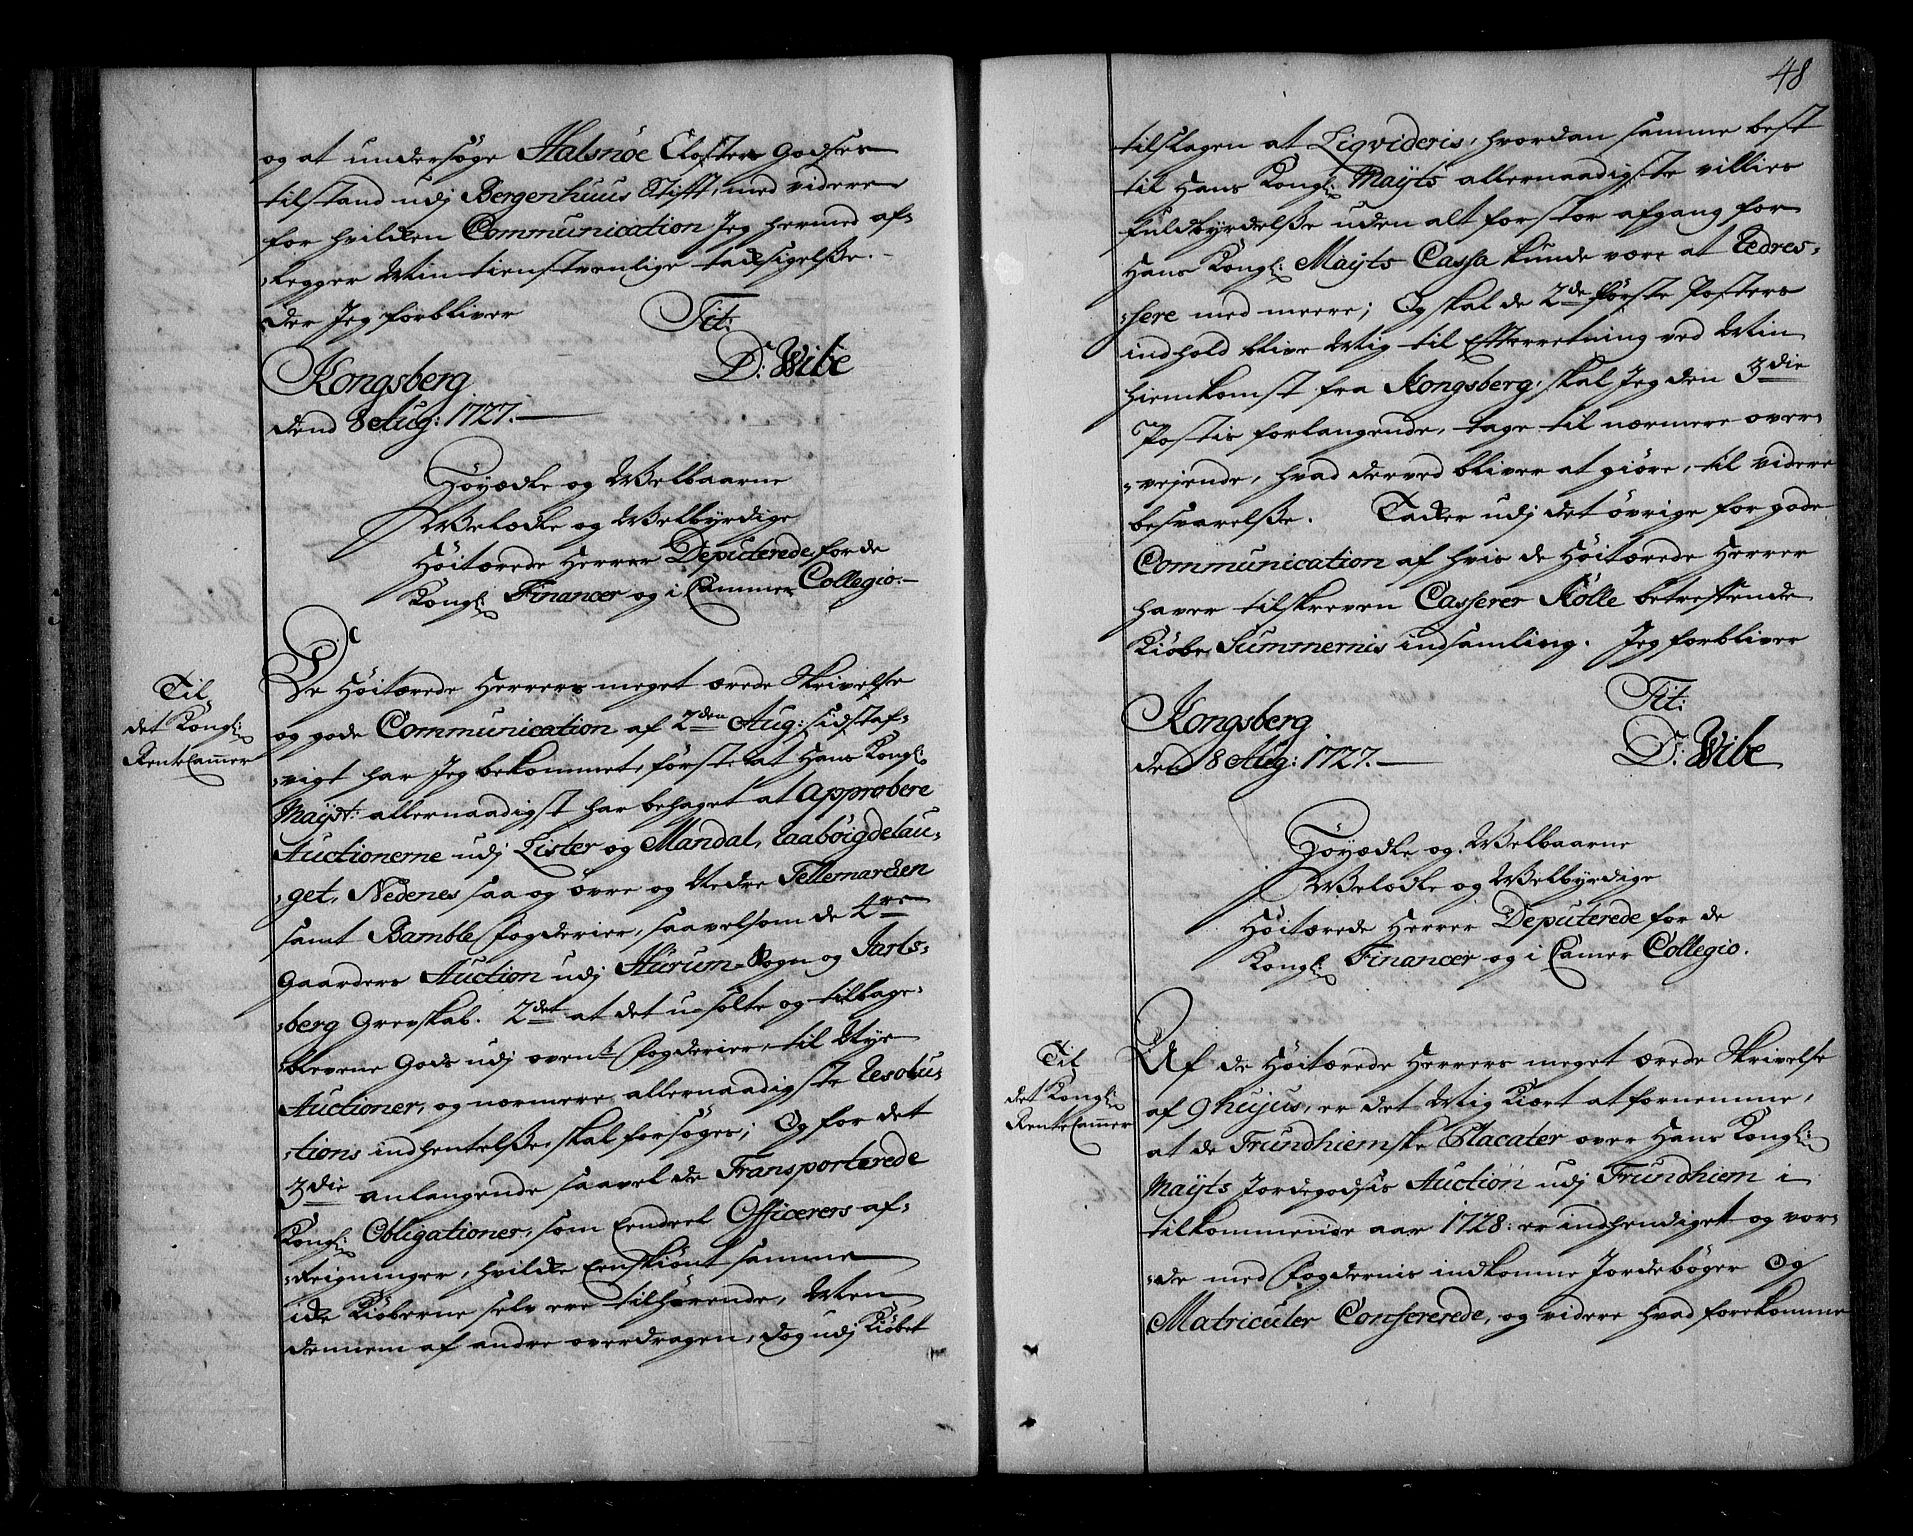 og at undersøge Halsnöe Closters Godses
tilstand udj Bergenhuus Stift, med videre
for hvilken Communication Jeg hermed af-
-legger Min tienstvenlige tacksigelsse.-
der Jeg forbliver Tit:
D: Wibe
Kongsberg
dend 8 Aug: 1727.
Höyædle og Welbaarne
Welædle og Welbÿrdige
Höitærede Herrer Deputerede for de
Kongl: Financer og i Cammer Collegio.-
Til
det Kongl:
RenteCammer
De Höitærede Herrers meget ærede Skrivelse
og gode Communication af 2den Aug: sidstaf-
-vigt har Jeg bekommet, første, at Hans Kongl:
Mayst: allernaadigst har behaget at Approbere
Auctionerne udj Lister og Mandal, Raaböigdelau-
-get, Nedenes saa og övre og Nedre Tellemarcken
samt Bamble fogderier, saavelsom de 4re
Gaarders Auction udj Hurum Sogn og Jarls-
-berg Grevskab. 2det at det usolte og tilbage-
-blevne Gods udj ovenbte fogderier, til Nye
Auctioner, og nærmere allernaadigste Resolu-
-tions indhentelsse, skal forsøges; Og for det
3die anlangende saavel de Transporterede
Kongl: Obligationer, som Eendeel Officerers af-
-regninger, hvilke Eenskiönt samme
icke Kiöberne selv ere tilhørende, Men
dennem af andre overdragen, dog udj Kiøbet
48
tilslagen at Liqvideris, hvordan samme best
til Hans Kongl: Mayts allernaadigste villies
fuldbyrdelsse uden alt for stor afgang for
Hans Kongl: Mayts Cassa kunde være at Redres-
-sere med meere; Og skal de 2de første Posters
indhold blive Mig til Efterretning ved Min
hiemkomst fra Kongsberg; skal Jeg den 3die
Postis forlangende, tage til nærmere over-
-vejende, hvad derved bliver at giöre, til videre
besvarelsse. Tacker udj det övrige for gode
Communication af hvis de Höitærede Herrer
haver tilskreven Casserer Kölle betreffende
Kiöbe Summernis indsamling. Jeg forbliver
Tit:
Kongsberg
den 8 Aug: 1727. D: Wibe
Höyædle og Welbaarne
Welædle og Welbÿrdige
Höitærede Herrer Deputerede for de
Kongl: Financer og i Camer Collegio.
Til
det Kongl:
RenteCammer
Af de Höitærede Herrers meget ærede Skrivelse
af 9 hujus, er det Mig Kiært at fornemme,
at de Trundhiemske Placater over Hans Kongl:
Mayts Jordegodsis Auction udj Trundhiem i
tilkommende aar 1728: er indhendiget og vor-
-de med fogdernis indkomne Jordebøger Og
Matriculer Confererede, og videre hvad forekomme